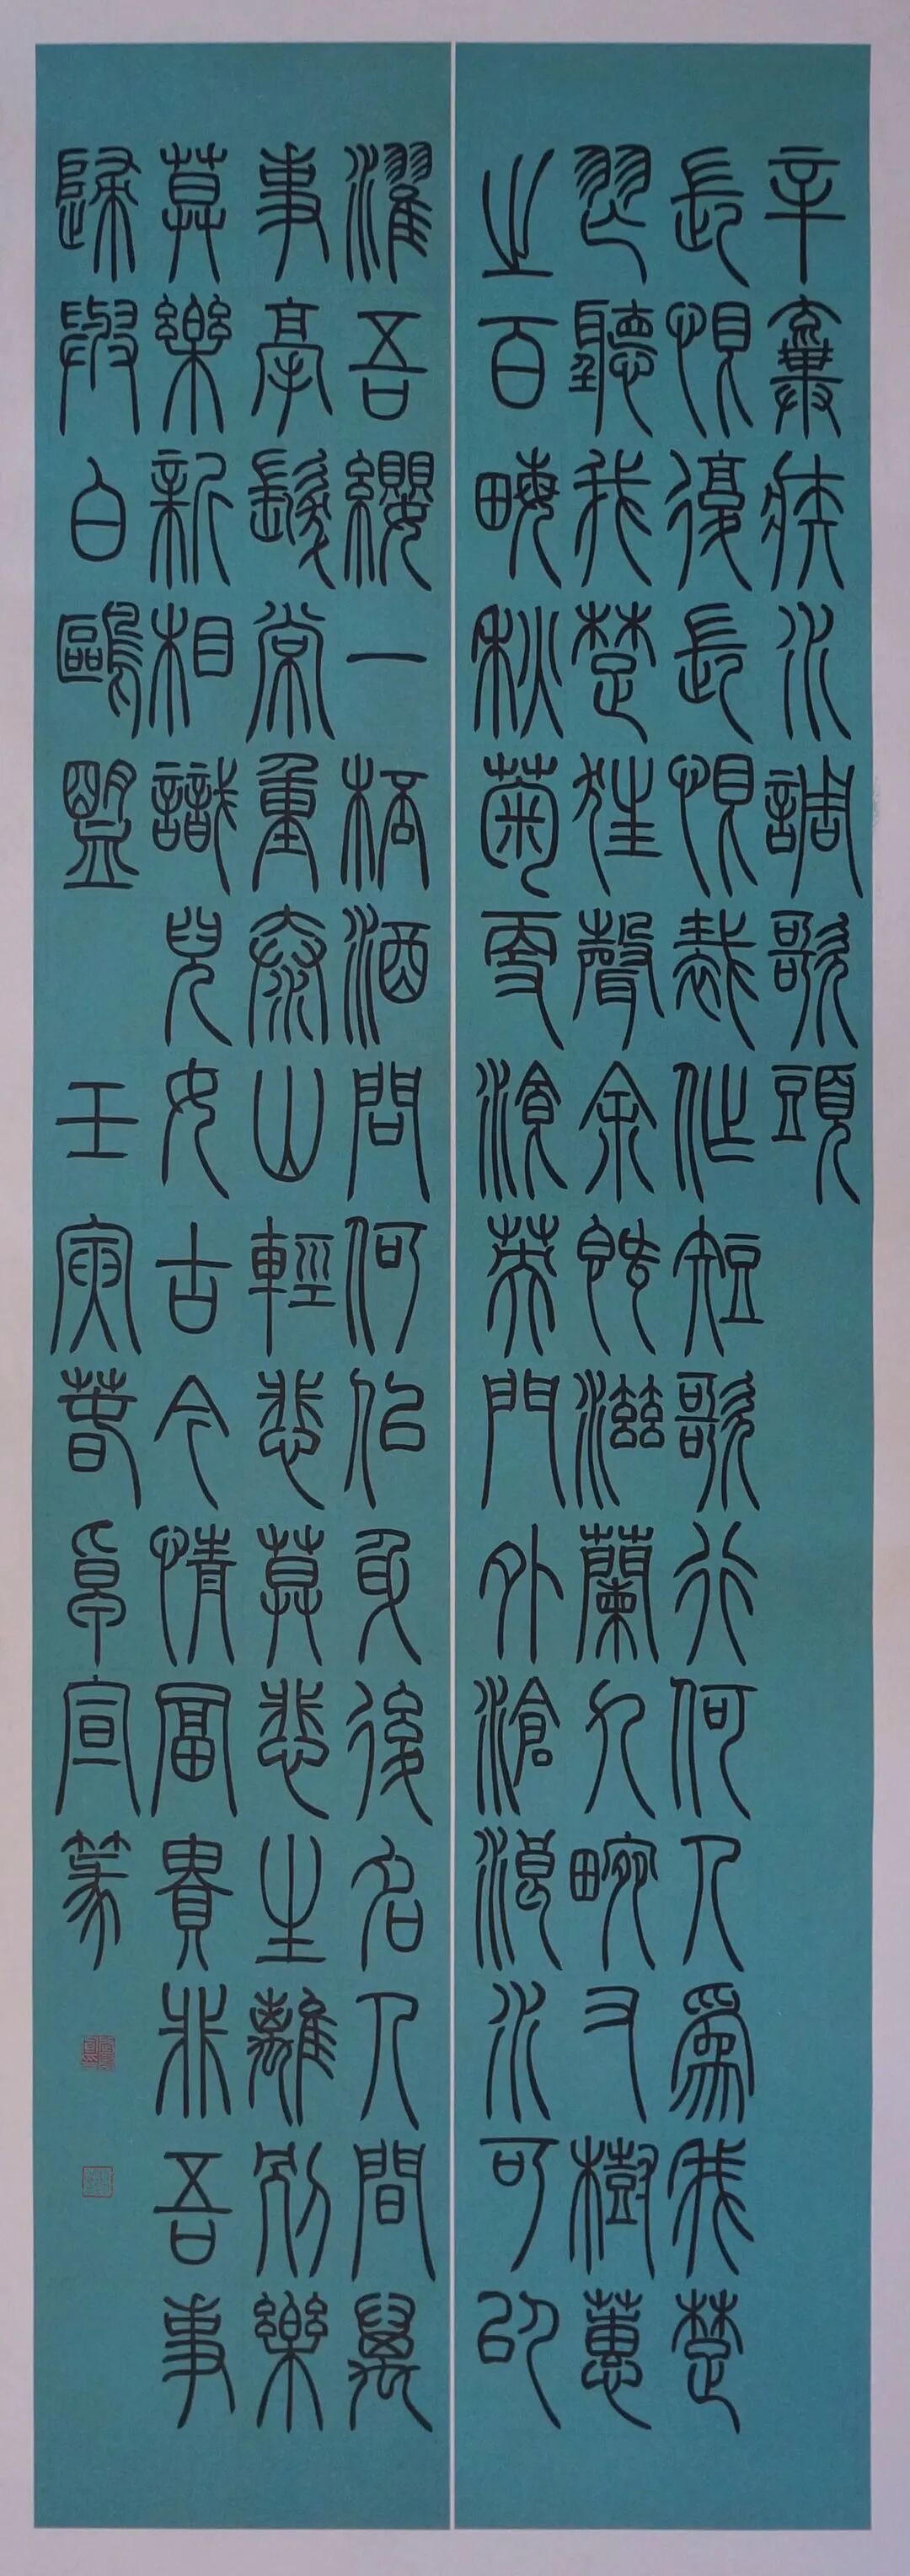 辛棄疾水調歌頭
長恨復長恨裁作短歌行何人為我楚
舞聽我楚狂聲余既滋蘭九畹又樹蕙
之百畮秋菊更湌英門外滄浪水可以
濯吾纓一桮酒問何似身後名人間萬
事毫髮常重泰山輕悲莫悲生離別樂
莫樂新相識兒女古今情富貴非吾事
歸與白鷗盟 壬寅春卓宣篆